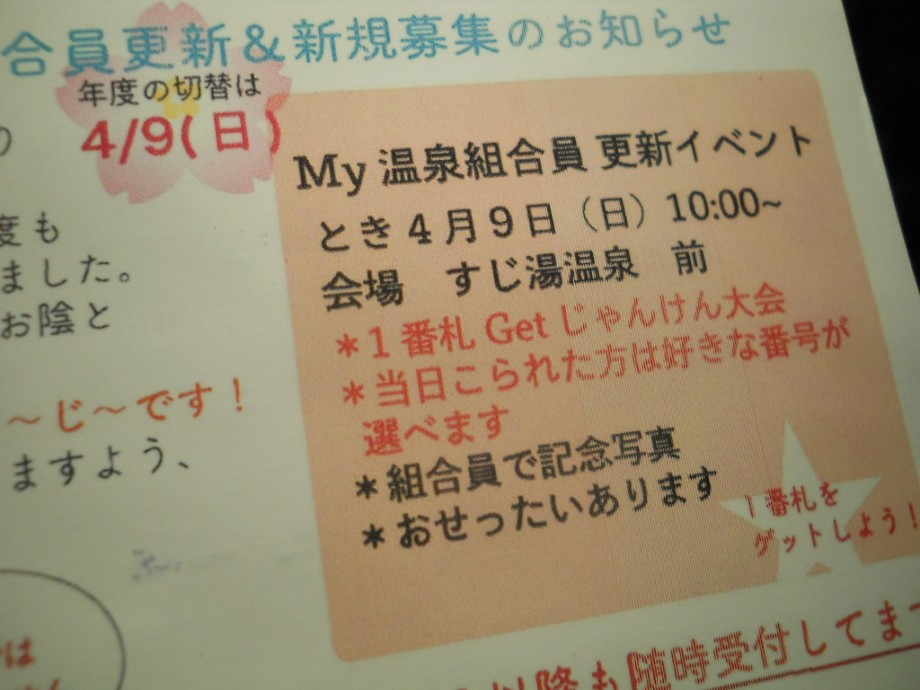 合員更新&新規募集のお知らせ
年度の切替は
4/9(日)
My 温泉組合員 更新イベント
とき 4月9日（日）10:00~
会場　すじ湯温泉　前
＊1番札 Get じゃんけん大会
＊当日こられた方は好きな番号が
選べます
＊組合員で記念写真
＊おせったいあります
1番札を
ゲットしよう！
度も
ました。
お陰と
～じ～です！
ますよう、
は
以降も随時受付してます